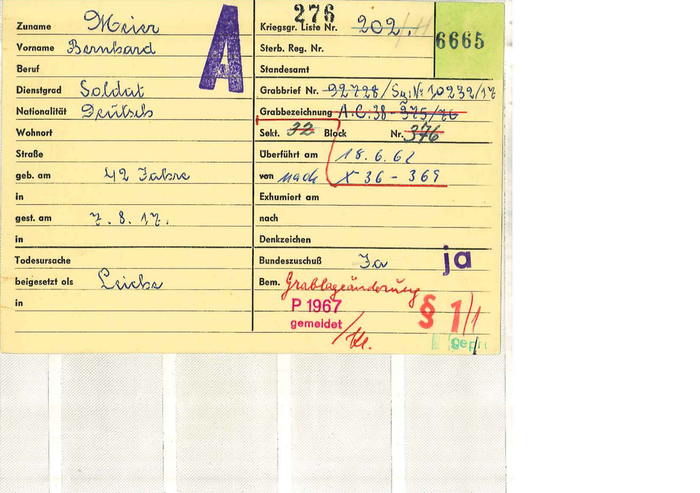 Zuname Meier
Vorname Bernhard
Beruf
Dienstgrad Soldat
Nationalität Deutsch
Wohnort
Straße
geb. am 42 Jahre
in
gest. am 7. 8. 17.
in
Todesursache
beigesetzt als Leiche
in
A
276
Kriegsgr. Liste Nr. 202
6665
Sterb. Reg. Nr.
Standesamt
Grabbrief Nr. 92728/
Grabbezeichnung A.C. 38 - 375/76
Sekt. 32 Block Nr. 376
Überführt am 18. 6. 62
von nach X 36 - 369
Exhumiert am
nach
Denkzeichen
Bundeszuschuß Ja ja
Bem. Grablageänderung
P 1967
gemeldet
§ 1/1